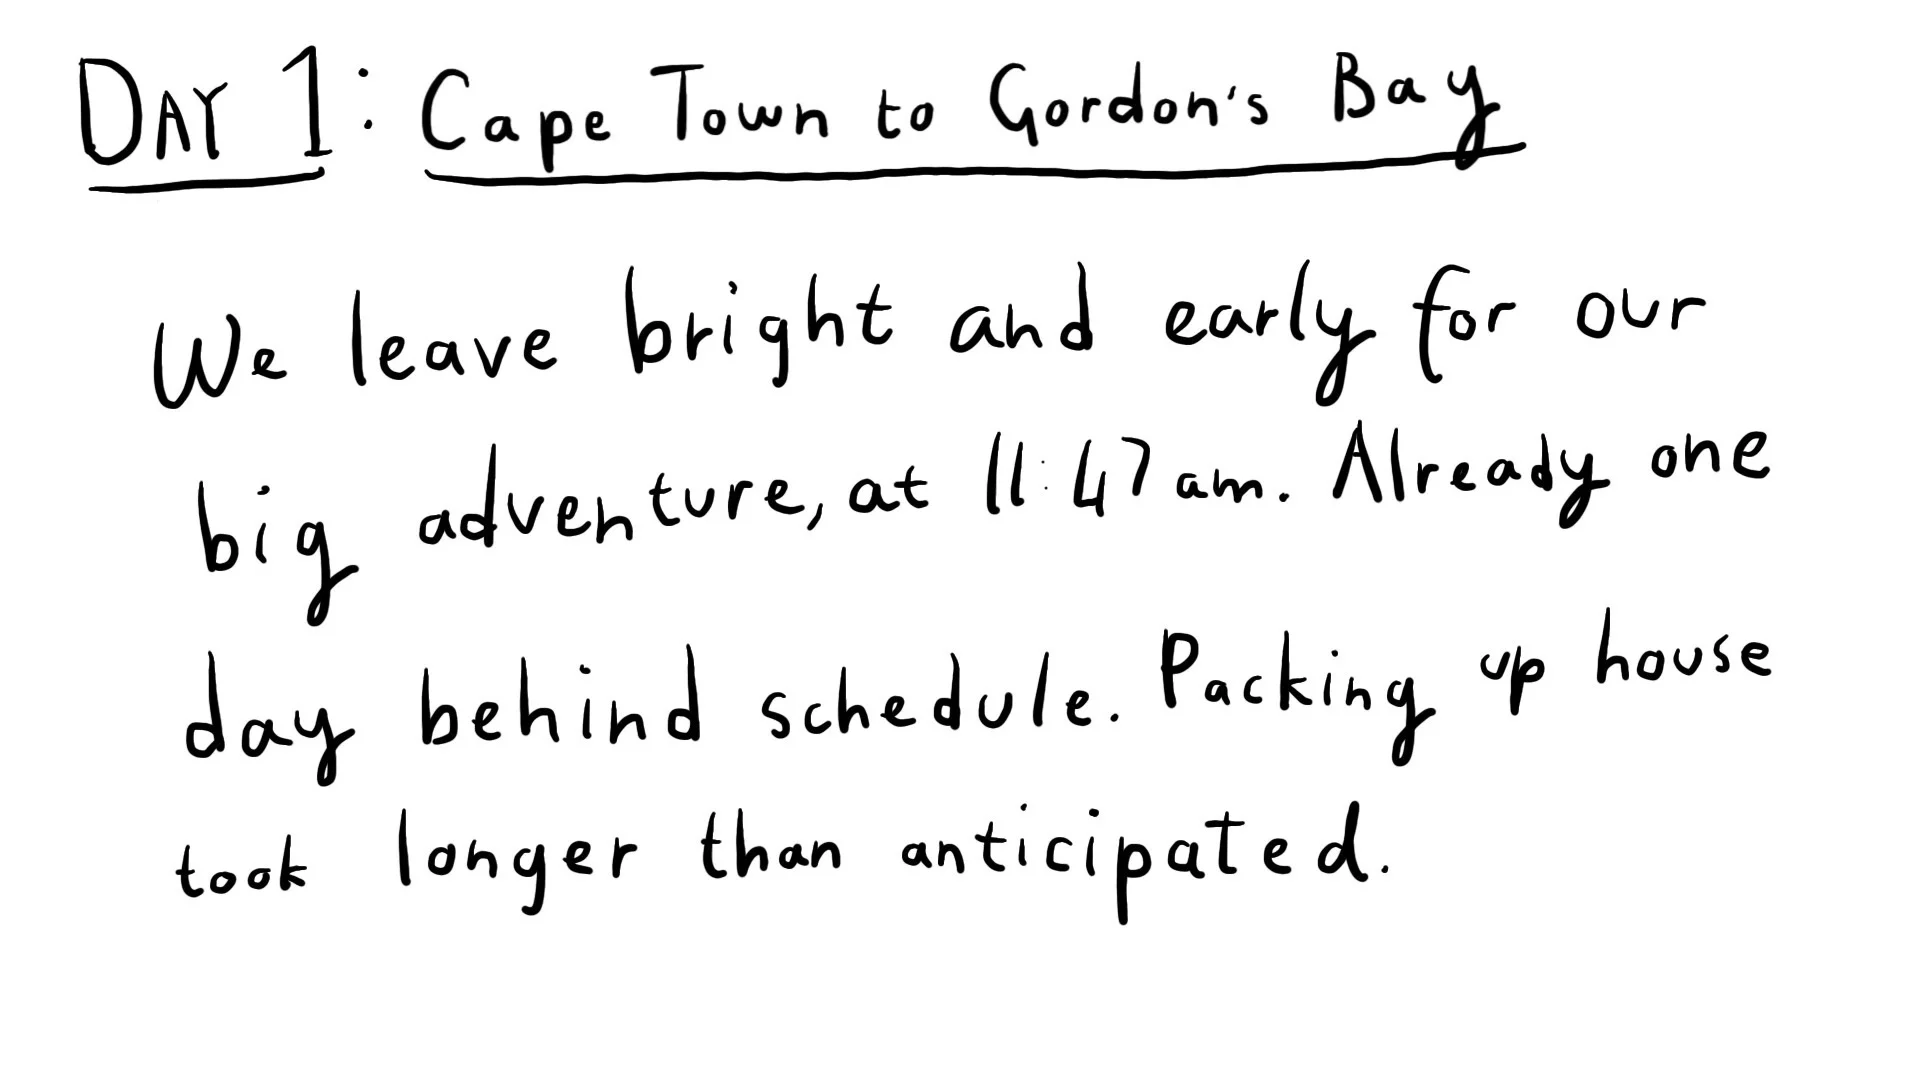 DAY 1: Cape Town to Gordon's Bay
We leave bright and early for our
big adventure, at 11:47am. Already one
day behind schedule. Packing up house
took longer than anticipated.